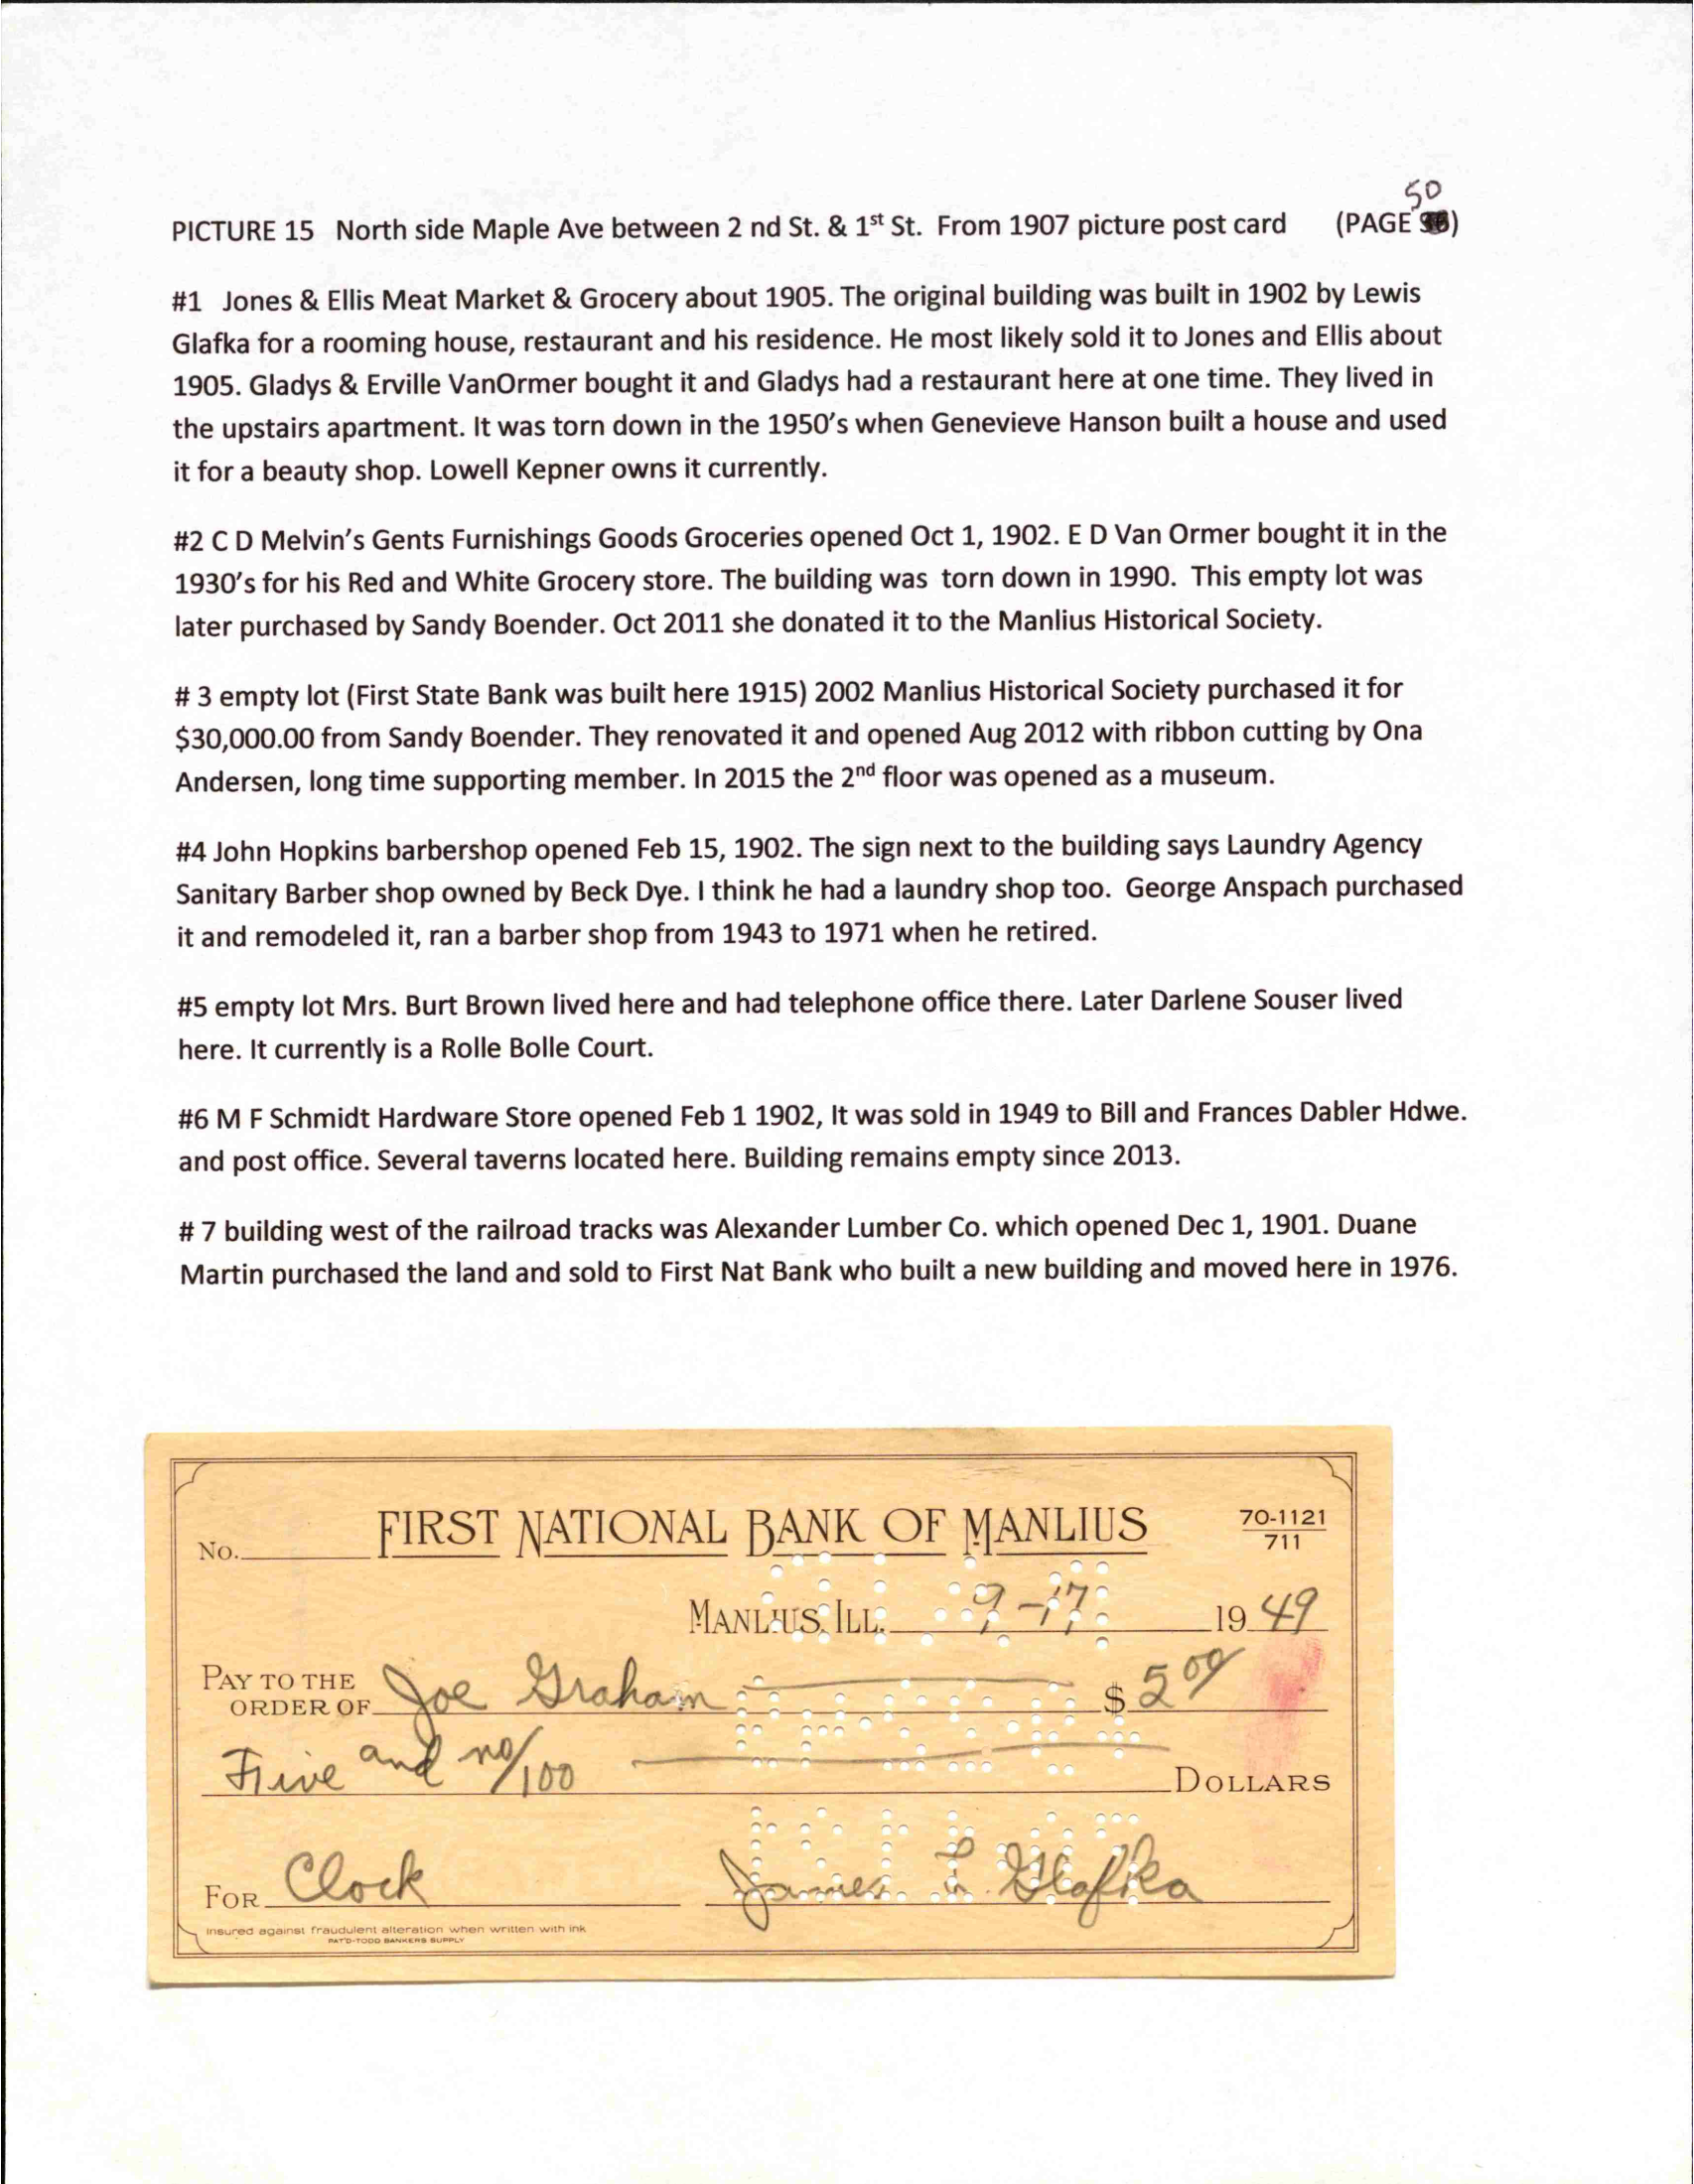 50
PICTURE 15 North side Maple Ave between 2 nd St. & 1st St. From 1907 picture post card (PAGE )
#1 Jones & Ellis Meat Market & Grocery about 1905. The original building was built in 1902 by Lewis
Glafka for a rooming house, restaurant and his residence. He most likely sold it to Jones and Ellis about
1905. Gladys & Erville VanOrmer bought it and Gladys had a restaurant here at one time. They lived in
the upstairs apartment. It was torn down in the 1950's when Genevieve Hanson built a house and used
it for a beauty shop. Lowell Kepner owns it currently.
#2 C D Melvin's Gents Furnishings Goods Groceries opened Oct 1, 1902. E D Van Ormer bought it in the
1930's for his Red and White Grocery store. The building was torn down in 1990. This empty lot was
later purchased by Sandy Boender. Oct 2011 she donated it to the Manlius Historical Society.
# 3 empty lot (First State Bank was built here 1915) 2002 Manlius Historical Society purchased it for
$30,000.00 from Sandy Boender. They renovated it and opened Aug 2012 with ribbon cutting by Ona
Andersen, long time supporting member. In 2015 the 2nd floor was opened as a museum.
#4 John Hopkins barbershop opened Feb 15, 1902. The sign next to the building says Laundry Agency
Sanitary Barber shop owned by Beck Dye. I think he had a laundry shop too. George Anspach purchased
it and remodeled it, ran a barber shop from 1943 to 1971 when he retired.
#5 empty lot Mrs. Burt Brown lived here and had telephone office there. Later Darlene Souser lived
here. It currently is a Rolle Bolle Court.
#6 M F Schmidt Hardware Store opened Feb 1 1902, It was sold in 1949 to Bill and Frances Dabler Hdwe.
and post office. Several taverns located here. Building remains empty since 2013.
# 7 building west of the railroad tracks was Alexander Lumber Co. which opened Dec 1, 1901. Duane
Martin purchased the land and sold to First Nat Bank who built a new building and moved here in 1976.
No. FIRST NATIONAL BANK OF MANLIUS 70-1121
711
MANLIUS, ILL. 9-17 19 49
PAY TO THE
ORDER OF Joe Graham $ 5 00
Five and no/100 DOLLARS
FOR Clock James L. Glafka
Insured against fraudulent alteration when written with ink
PAT'D-TODD BANKERS SUPPLY